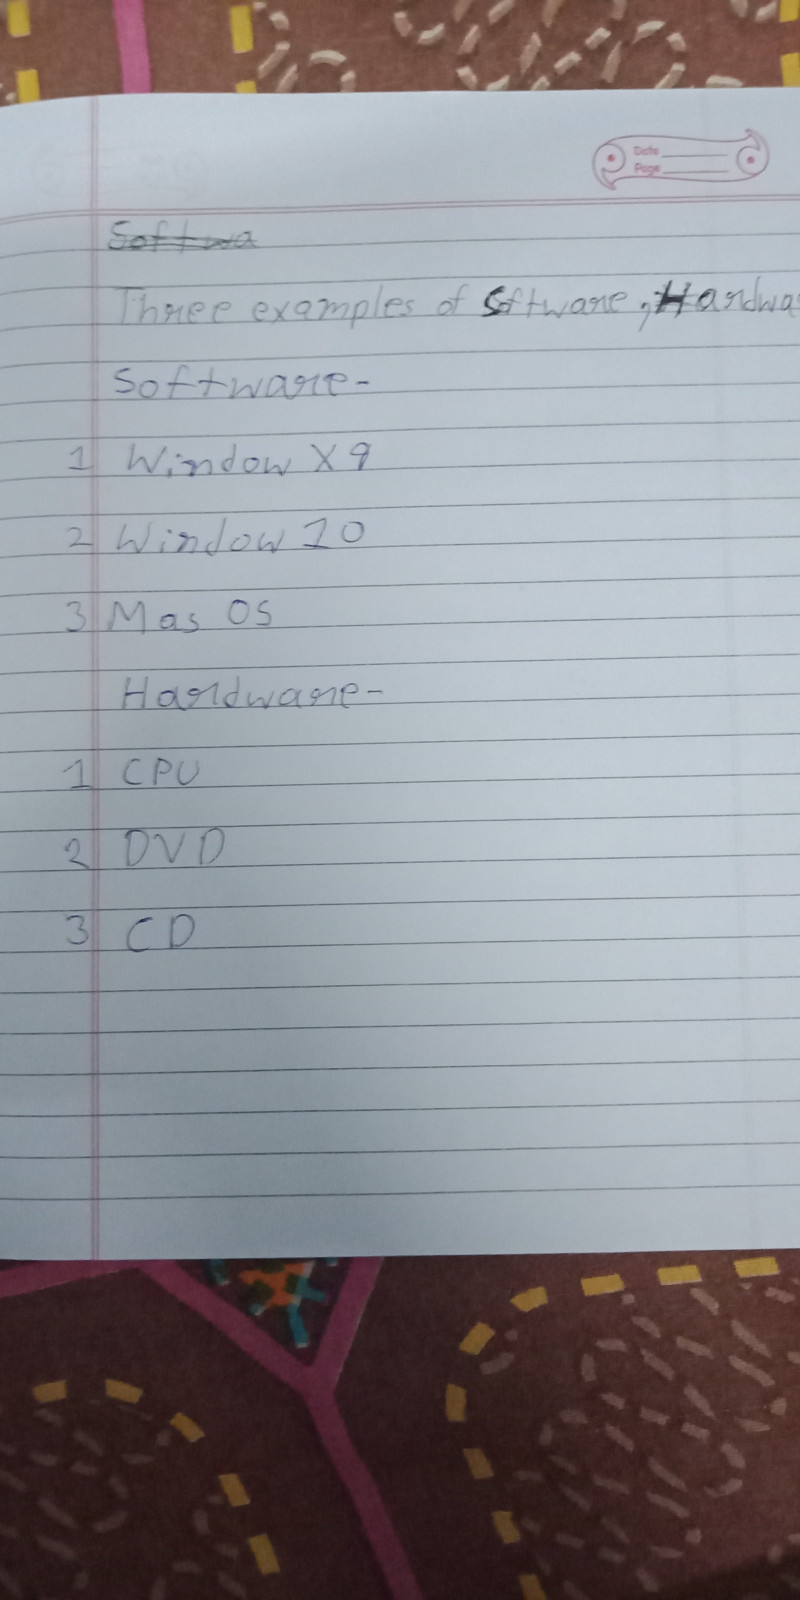 Date
Page
Softwa
Three examples of Software, Hardwa
Software-
1 Window X9
2 Window 10
3 Mas OS
Hardware-
1 CPU
2 DVD
3 CD